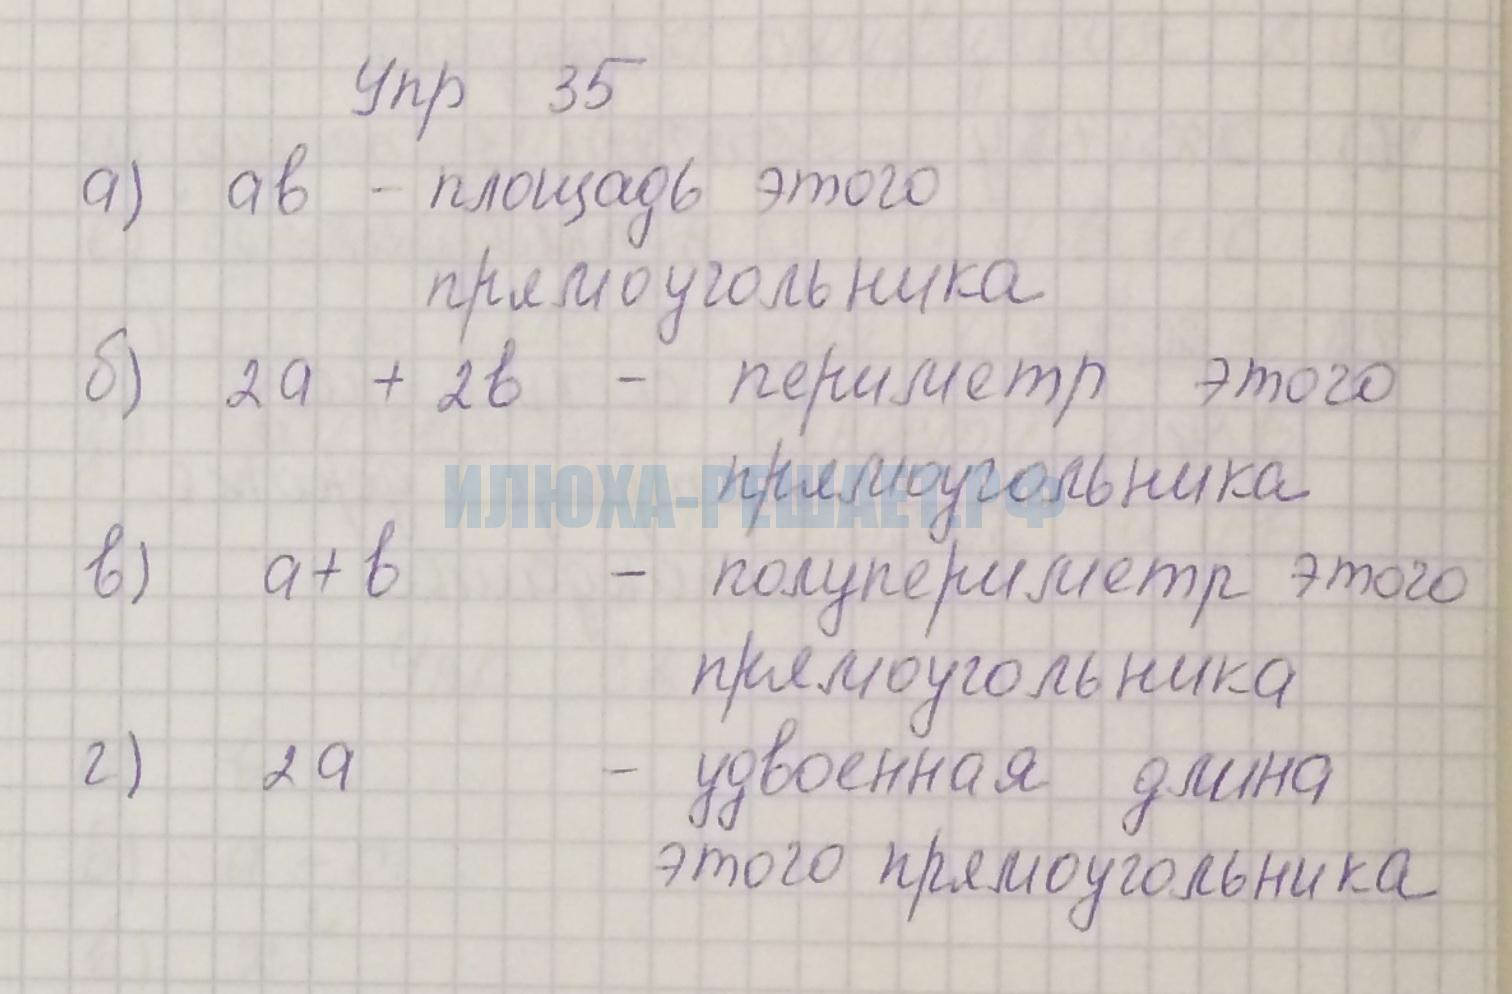 Упр 35
а) ab - площадь этого
прямоугольника
б) 2a + 2b - периметр этого
прямоугольника
ИЛЮХА-РЕШАЕТ.РФ
в) a+b - полупериметр этого
прямоугольника
г) 2a - удвоенная длина
этого прямоугольника